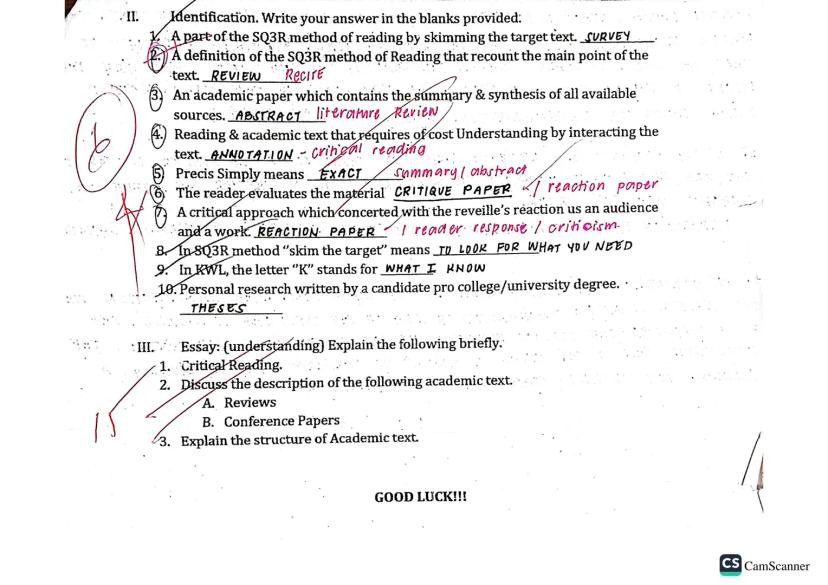 II. Identification. Write your answer in the blanks provided:
1. A part of the SQ3R method of reading by skimming the target text. SURVEY
2. A definition of the SQ3R method of Reading that recount the main point of the
text. REVIEW RECITE
3. An academic paper which contains the summary & synthesis of all available
sources. ABSTRACT literature Review
4. Reading & academic text that requires of cost Understanding by interacting the
text. ANNOTATION - critical reading
5 Precis Simply means EXACT summary / abstract
6 The reader evaluates the material CRITIQUE PAPER / reaction paper
7 A critical approach which concerted with the reveille's reaction us an audience
and a work. REACTION PAPER / reader response / criticism
8. In SQ3R method "skim the target" means TO LOOK FOR WHAT YOU NEED
9. In KWL, the letter "K" stands for WHAT I KNOW
10. Personal research written by a candidate pro college/university degree.
THESES
6
III. Essay: (understanding) Explain the following briefly.
1. Critical Reading.
2. Discuss the description of the following academic text.
A. Reviews
B. Conference Papers
3. Explain the structure of Academic text.
15
GOOD LUCK!!!
CS CamScanner